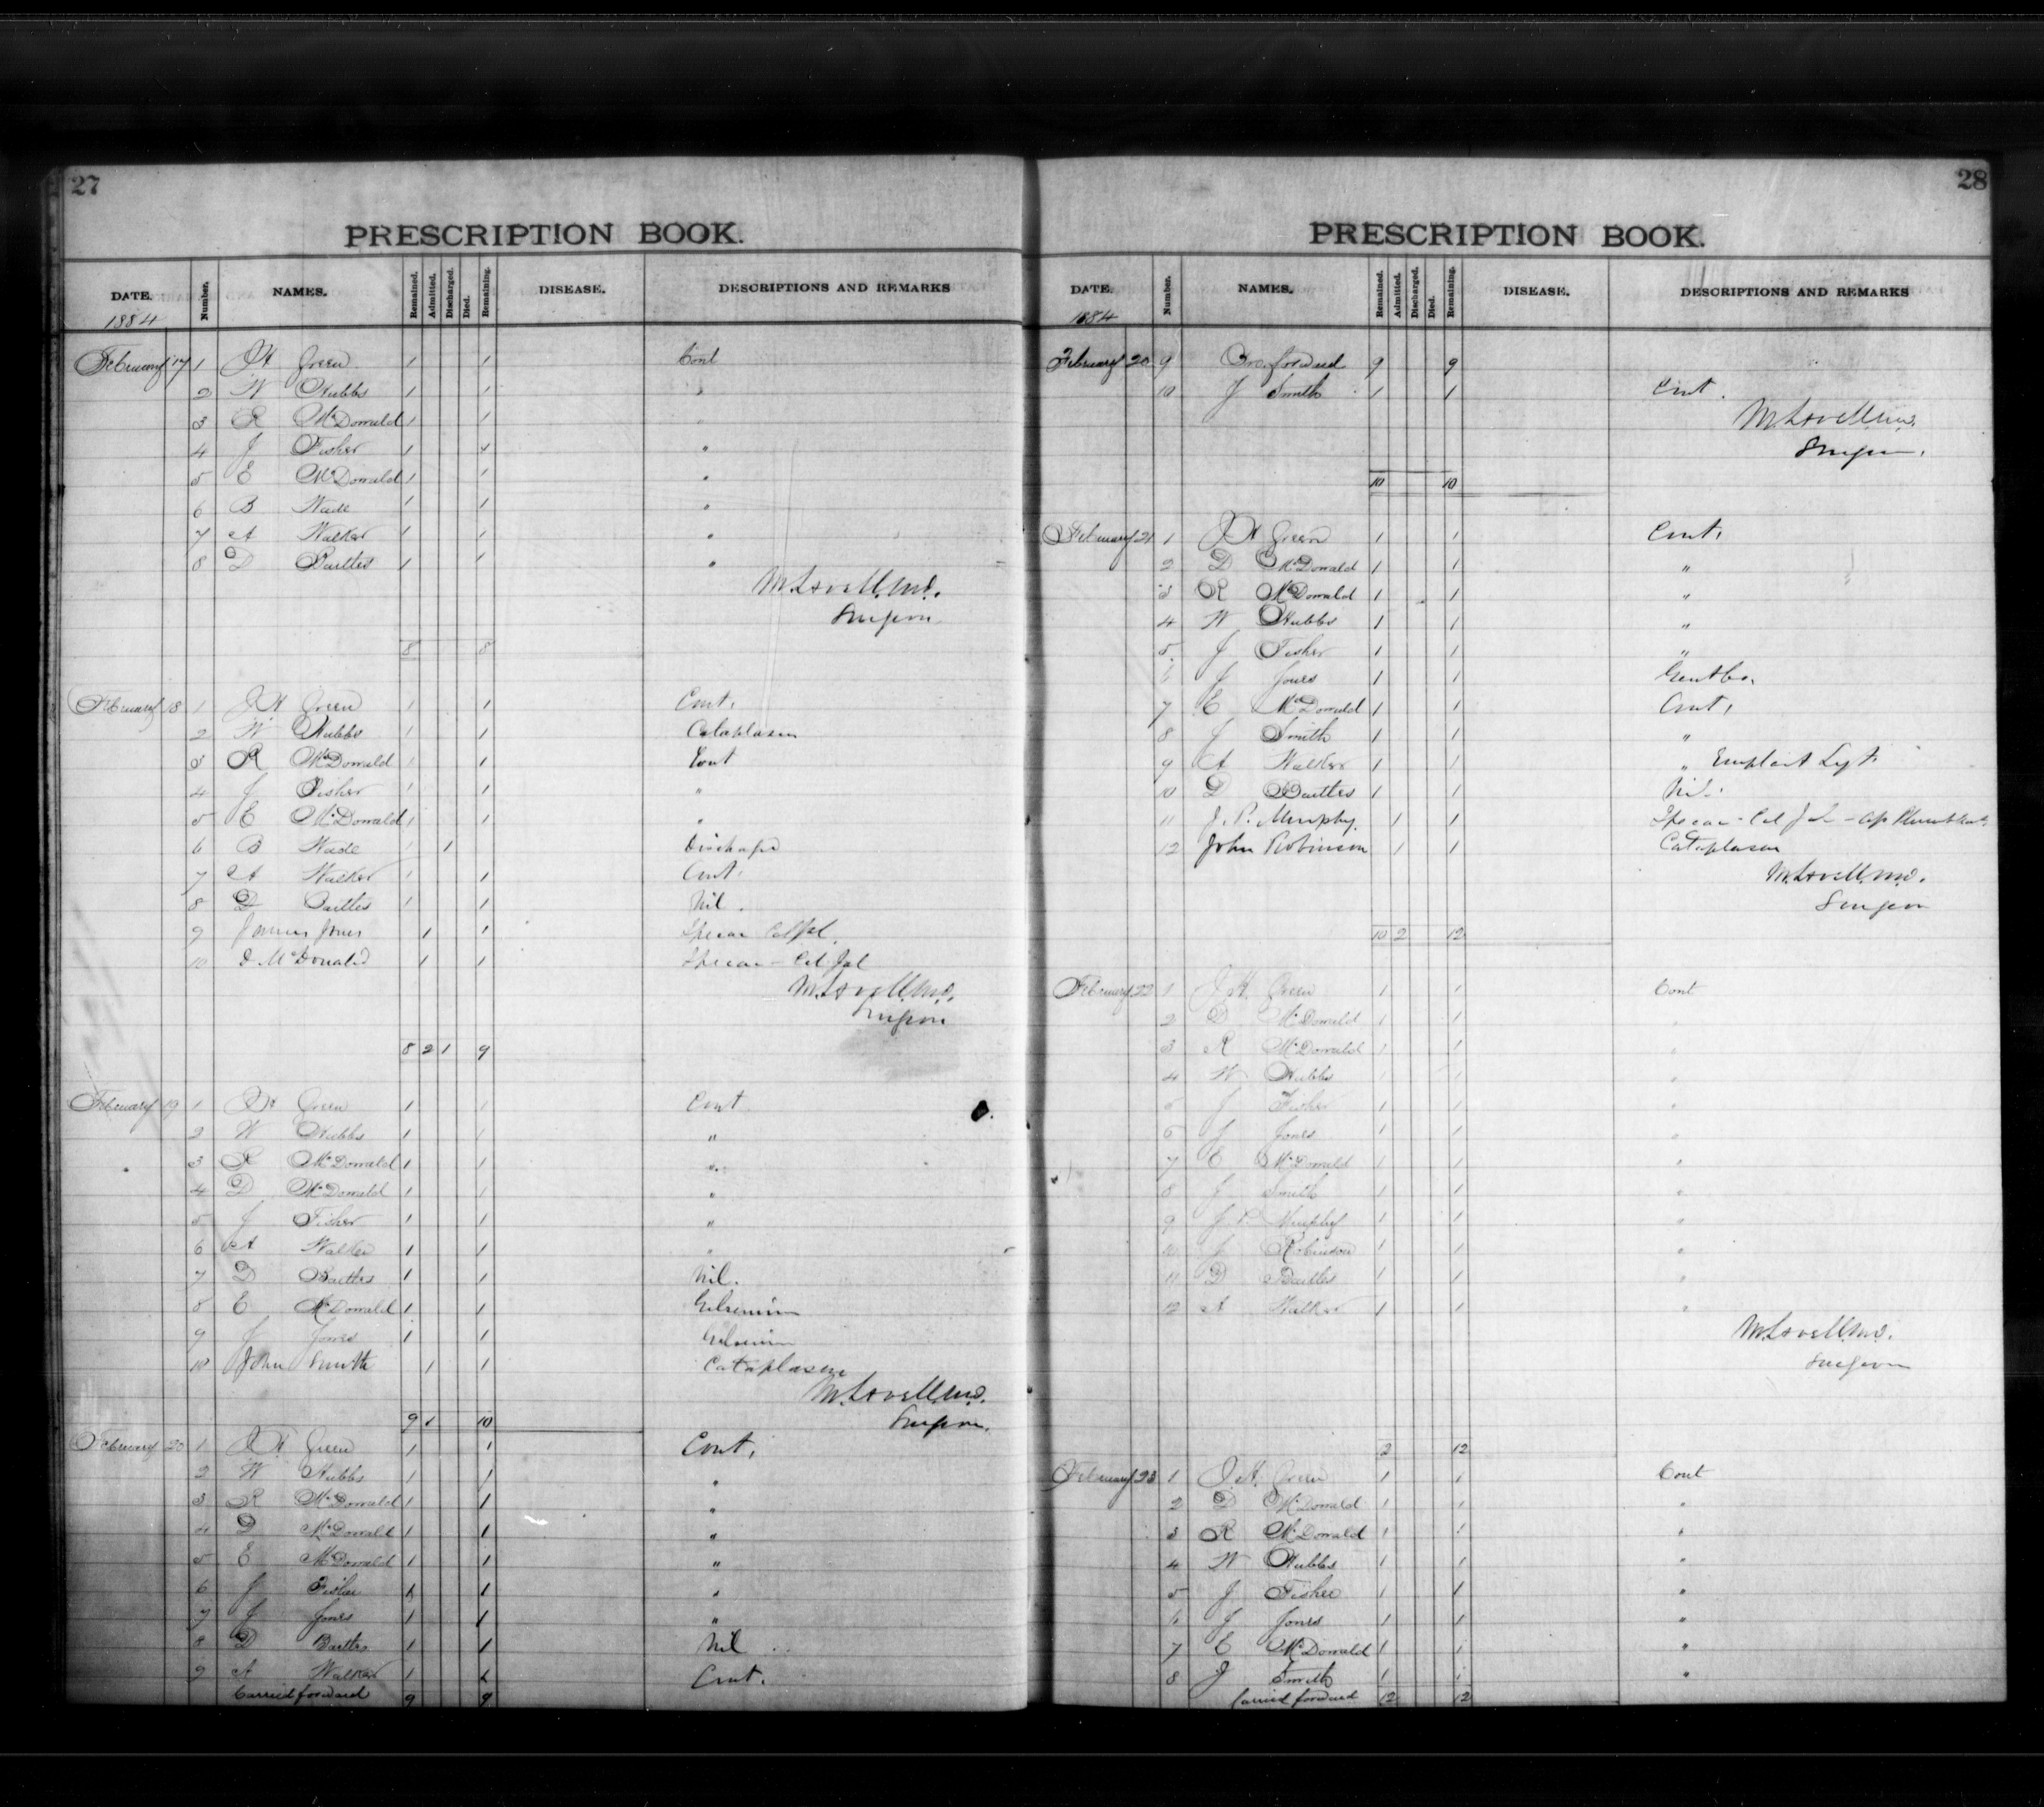 27
PRESCRIPTION BOOK.
DATE. Number. NAMES. Remained. Admitted. Discharged. Died. Remaining. DISEASE. DESCRIPTIONS AND REMARKS
1884
February 17 1 J H Green 1 1 Cont
2 W Stubbs 1 1 "
3 R McDonald 1 1 "
4 J Fisher 1 1 "
5 E McDonald 1 1 "
6 B Wade 1 1 "
7 A Walker 1 1 "
8 D Bartles 1 1 "
M. Lovell M.D.
Surgeon
8 8
February 18 1 J H Green 1 1 Cont.
2 W Stubbs 1 1 Cataplasm
3 R McDonald 1 1 Cont
4 J Fisher 1 1 "
5 E McDonald 1 1 "
6 B Wade 1 1 Discharged
7 A Walker 1 1 Cont.
8 D Bartles 1 1 Nil.
9 James Jones 1 1 Ipecac
10 D McDonald 1 1 Ipecac - Col Jal
M. Lovell M.D.
Surgeon
8 2 1 9
February 19 1 J H Green 1 1 Cont
2 W Stubbs 1 1 "
3 R McDonald 1 1 "
4 D McDonald 1 1 "
5 J Fisher 1 1 "
6 A Walker 1 1 "
7 D Bartles 1 1 Nil.
8 E McDonald 1 1 Gelsemium
9 J Jones 1 1 Gelsemium
10 John Smith 1 1 Cataplasm
M. Lovell M.D.
Surgeon.
9 1 10
February 20 1 J H Green 1 1 Cont.
2 W Stubbs 1 1 "
3 R McDonald 1 1 "
4 D McDonald 1 1 "
5 E McDonald 1 1 "
6 J Fisher 1 1 "
7 J Jones 1 1 "
8 D Bartles 1 1 Nil
9 A Walker 1 1 Cont.
Carried forward 9 9
28
PRESCRIPTION BOOK.
DATE. Number. NAMES. Remained. Admitted. Discharged. Died. Remaining. DISEASE. DESCRIPTIONS AND REMARKS
1884
February 20 9 Bro. forward 9 9
10 J Smith 1 1 Cont.
M. Lovell M.D.
Surgeon.
10 10
February 21 1 J H Green 1 1 Cont.
2 D McDonald 1 1 "
3 R McDonald 1 1 "
4 W Stubbs 1 1 "
5 J Fisher 1 1 "
6 J Jones 1 1
7 E McDonald 1 1 Cont.
8 J Smith 1 1 "
9 A Walker 1 1 "
10 D Bartles 1 1 Nil.
11 J. P. Murphy 1 1 Ipecac - Col Jal
12 John Robinson 1 1 Cataplasm
M. Lovell M.D.
Surgeon
10 2 12
February 22 1 J H. Green 1 1 Cont
2 D McDonald 1 1 "
3 R McDonald 1 1 "
4 W Stubbs 1 1 "
5 J Fisher 1 1 "
6 J Jones 1 1 "
7 E McDonald 1 1 "
8 J Smith 1 1 "
9 J P. Murphy 1 1 "
10 J Robinson 1 1 "
11 D Bartles 1 1 "
12 A Walker 1 1 "
M. Lovell M.D.
Surgeon
2 12
February 23 1 J H. Green 1 1 Cont
2 D McDonald 1 1 "
3 R McDonald 1 1 "
4 W Stubbs 1 1 "
5 J Fisher 1 1 "
6 J Jones 1 1 "
7 E McDonald 1 1 "
8 J Smith 1 1 "
Carried forward 12 12